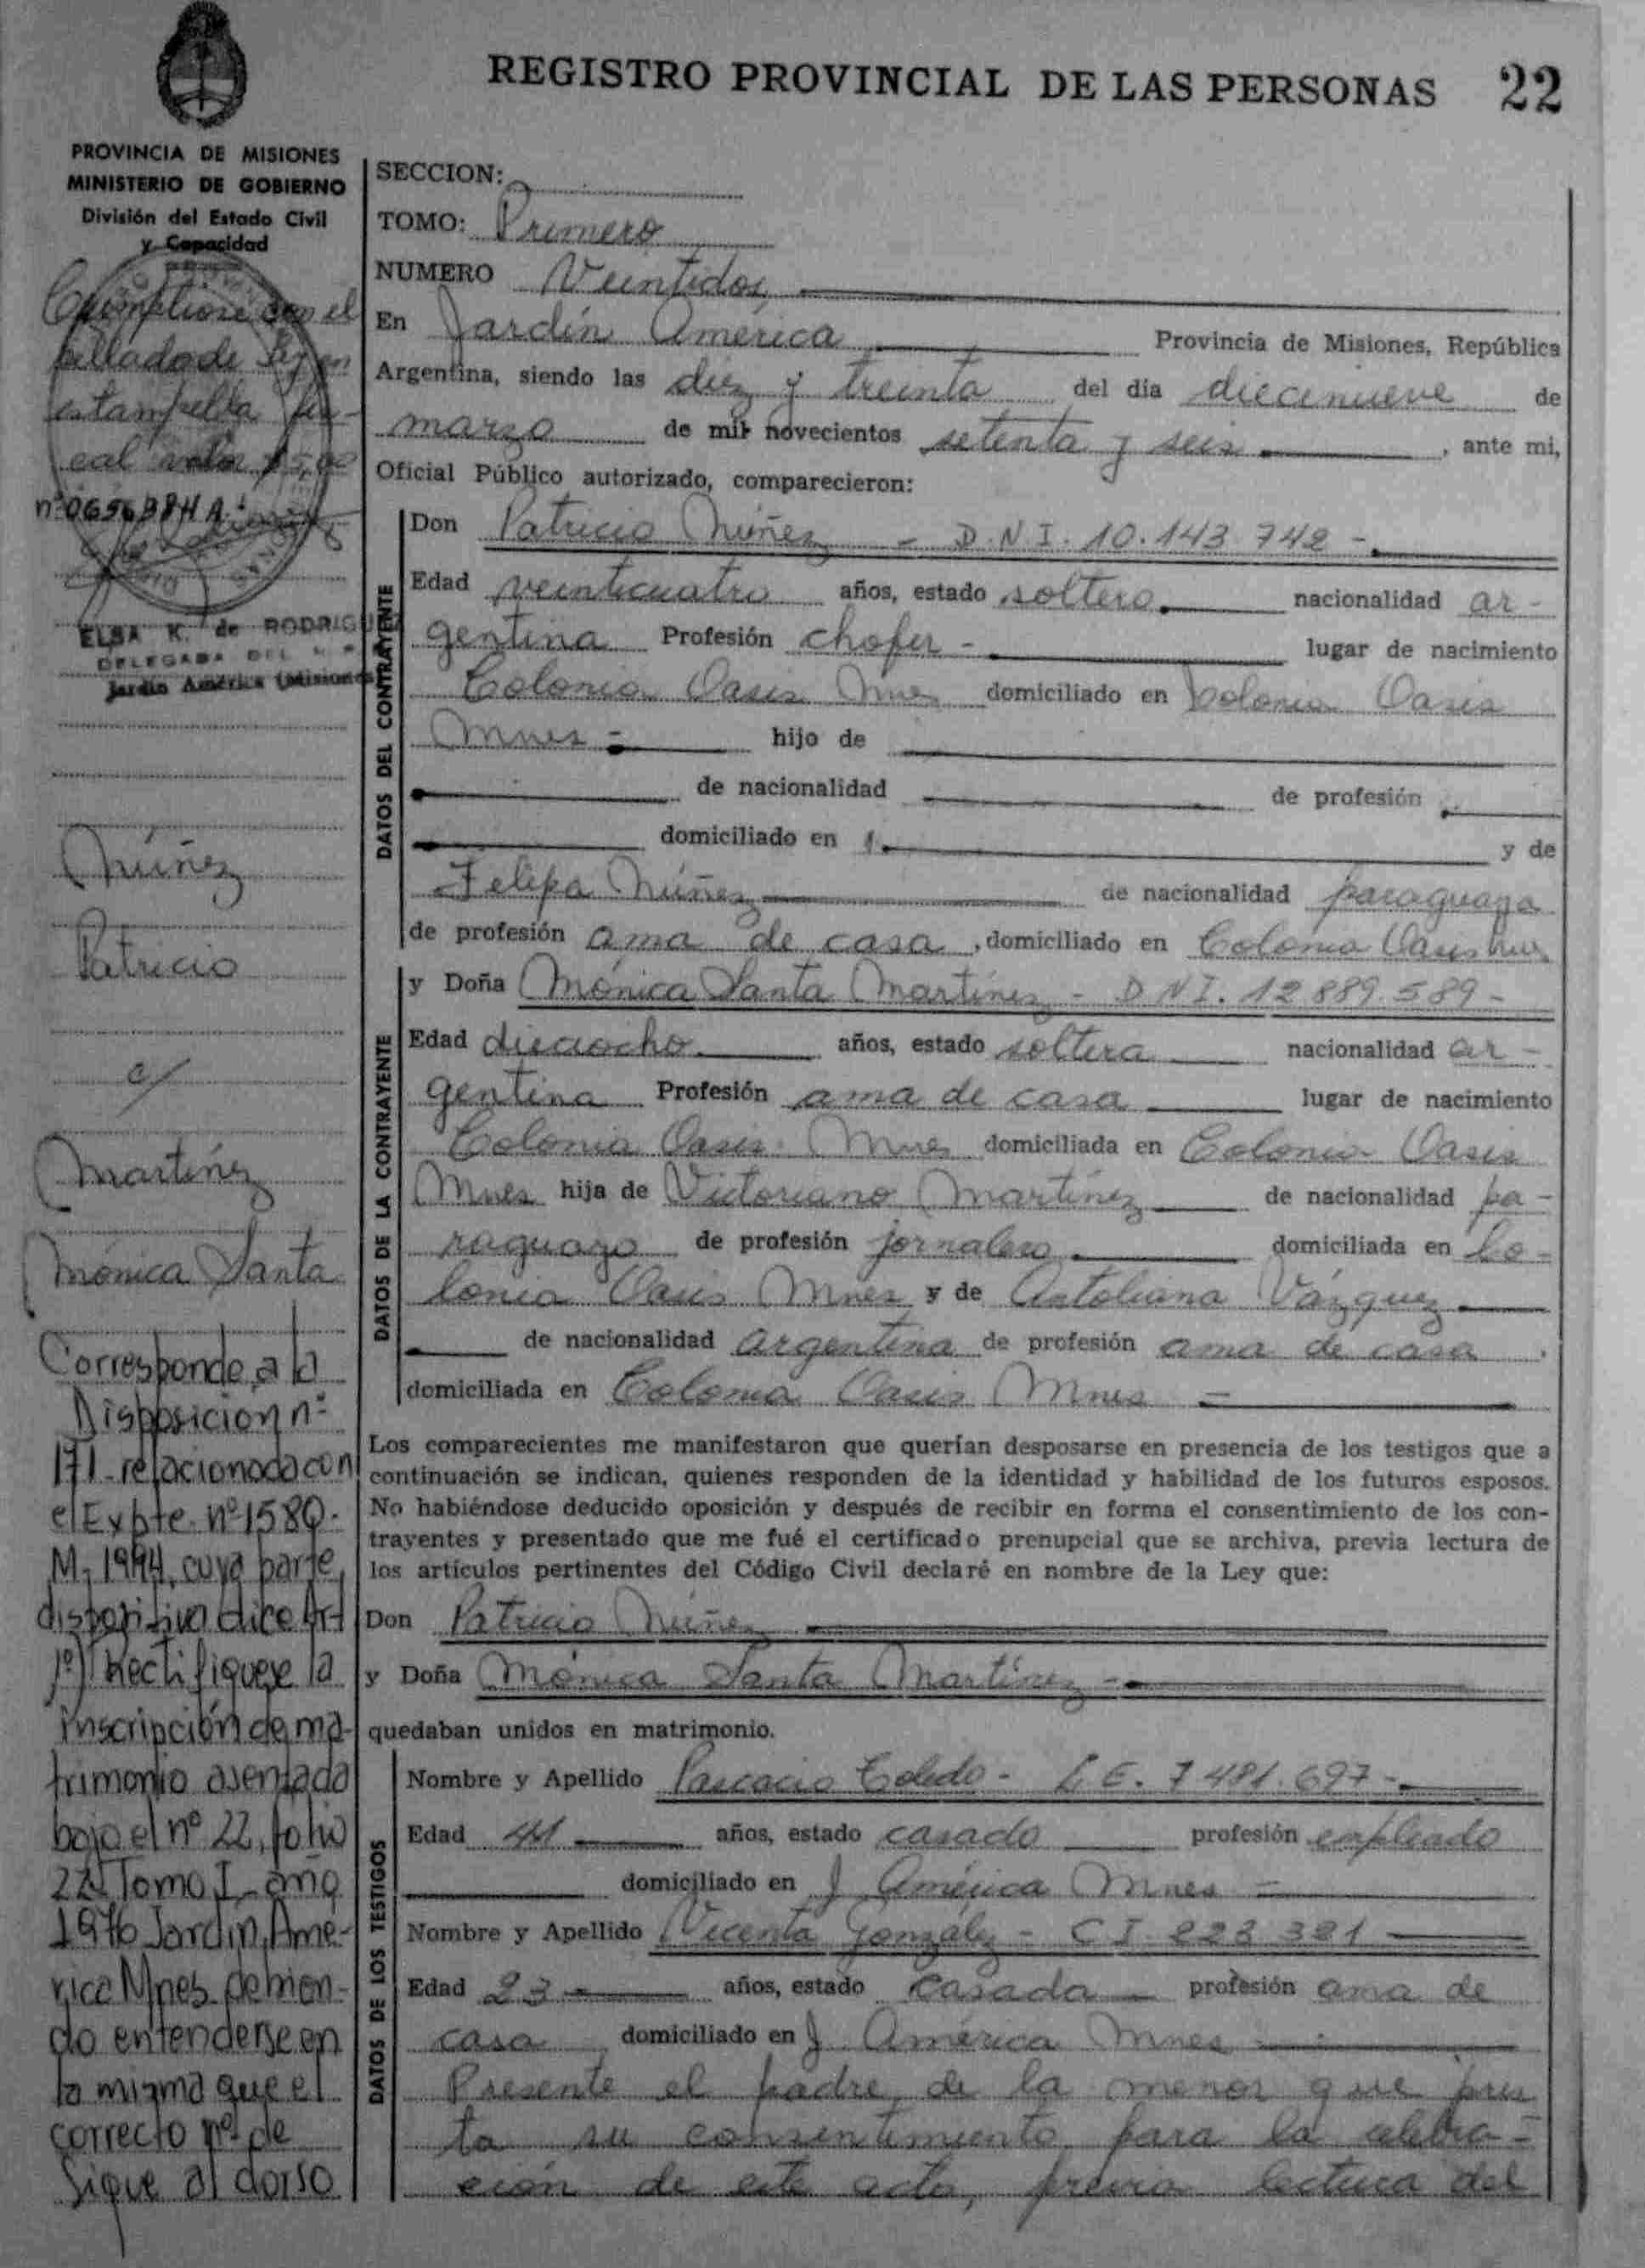 REGISTRO PROVINCIAL DE LAS PERSONAS 22
PROVINCIA DE MISIONES
MINISTERIO DE GOBIERNO
División del Estado Civil
y Capacidad
Cumplióse con el
sellado de ley en
estampilla fis-
cal valor $ 5,00
nº
ELSA K. de RODRIGUEZ
DELEGADA DEL
Jardín América (Misiones)
Núñez
Patricio
c/
Martínez
Mónica Santa
Corresponde a la
Disposicion nº
171 relacionada con
el Expte. nº 1580-
M-1994, cuya parte
dispositiva dice Art
1º) Rectifiquese la
inscripción de ma-
trimonio asentada
bajo el nº 22, folio
22 Tomo I año
1976 Jardin Amé-
rica Mnes debien-
do entenderse en
la misma que el
correcto nº de
Sigue al dorso
SECCION:
TOMO: Primero
NUMERO Veintidos
En Jardín América Provincia de Misiones, República
Argentina, siendo las diez y treinta del día diecinueve de
marzo de mil novecientos setenta y seis, ante mi,
Oficial Público autorizado, comparecieron:
DATOS DEL CONTRAYENTE
Don Patricio Núñez - D.N.I. 10.143.742 -
Edad veinticuatro años, estado soltero nacionalidad ar-
gentina Profesión chofer - lugar de nacimiento
Colonia Oasis Mnes domiciliado en Colonia Oasis
Mnes - hijo de
de nacionalidad de profesión
domiciliado en y de
Felipa Núñez de nacionalidad paraguaya
de profesión ama de casa, domiciliado en Colonia Oasis Mnes
DATOS DE LA CONTRAYENTE
y Doña Mónica Santa Martínez - D N I. 12.889.589-
Edad dieciocho años, estado soltera nacionalidad ar-
gentina Profesión ama de casa lugar de nacimiento
Colonia Oasis Mnes domiciliada en Colonia Oasis
Mnes hija de Victoriano Martínez de nacionalidad pa-
raguayo de profesión jornalero domiciliada en Co-
lonia Oasis Mnes y de Antoliana Vázquez
de nacionalidad argentina de profesión ama de casa.
domiciliada en Colonia Oasis Mnes -
Los comparecientes me manifestaron que querían desposarse en presencia de los testigos que a
continuación se indican, quienes responden de la identidad y habilidad de los futuros esposos.
No habiéndose deducido oposición y después de recibir en forma el consentimiento de los con-
trayentes y presentado que me fué el certificado prenupcial que se archiva, previa lectura de
los artículos pertinentes del Código Civil declaré en nombre de la Ley que:
Don Patricio Núñez
y Doña Mónica Santa Martínez -
quedaban unidos en matrimonio.
DATOS DE LOS TESTIGOS
Nombre y Apellido Pascacio Toledo - L.E. 7 481.697 -
Edad 41 años, estado casado profesión empleado
domiciliado en J América Mnes -
Nombre y Apellido Vicenta González - C I 223 321
Edad 23 años, estado casada profesión ama de
casa domiciliado en J. América Mnes
Presente el padre de la menor que pres
ta su consentimiento para la celebra-
ción de este acto, previa lectura del